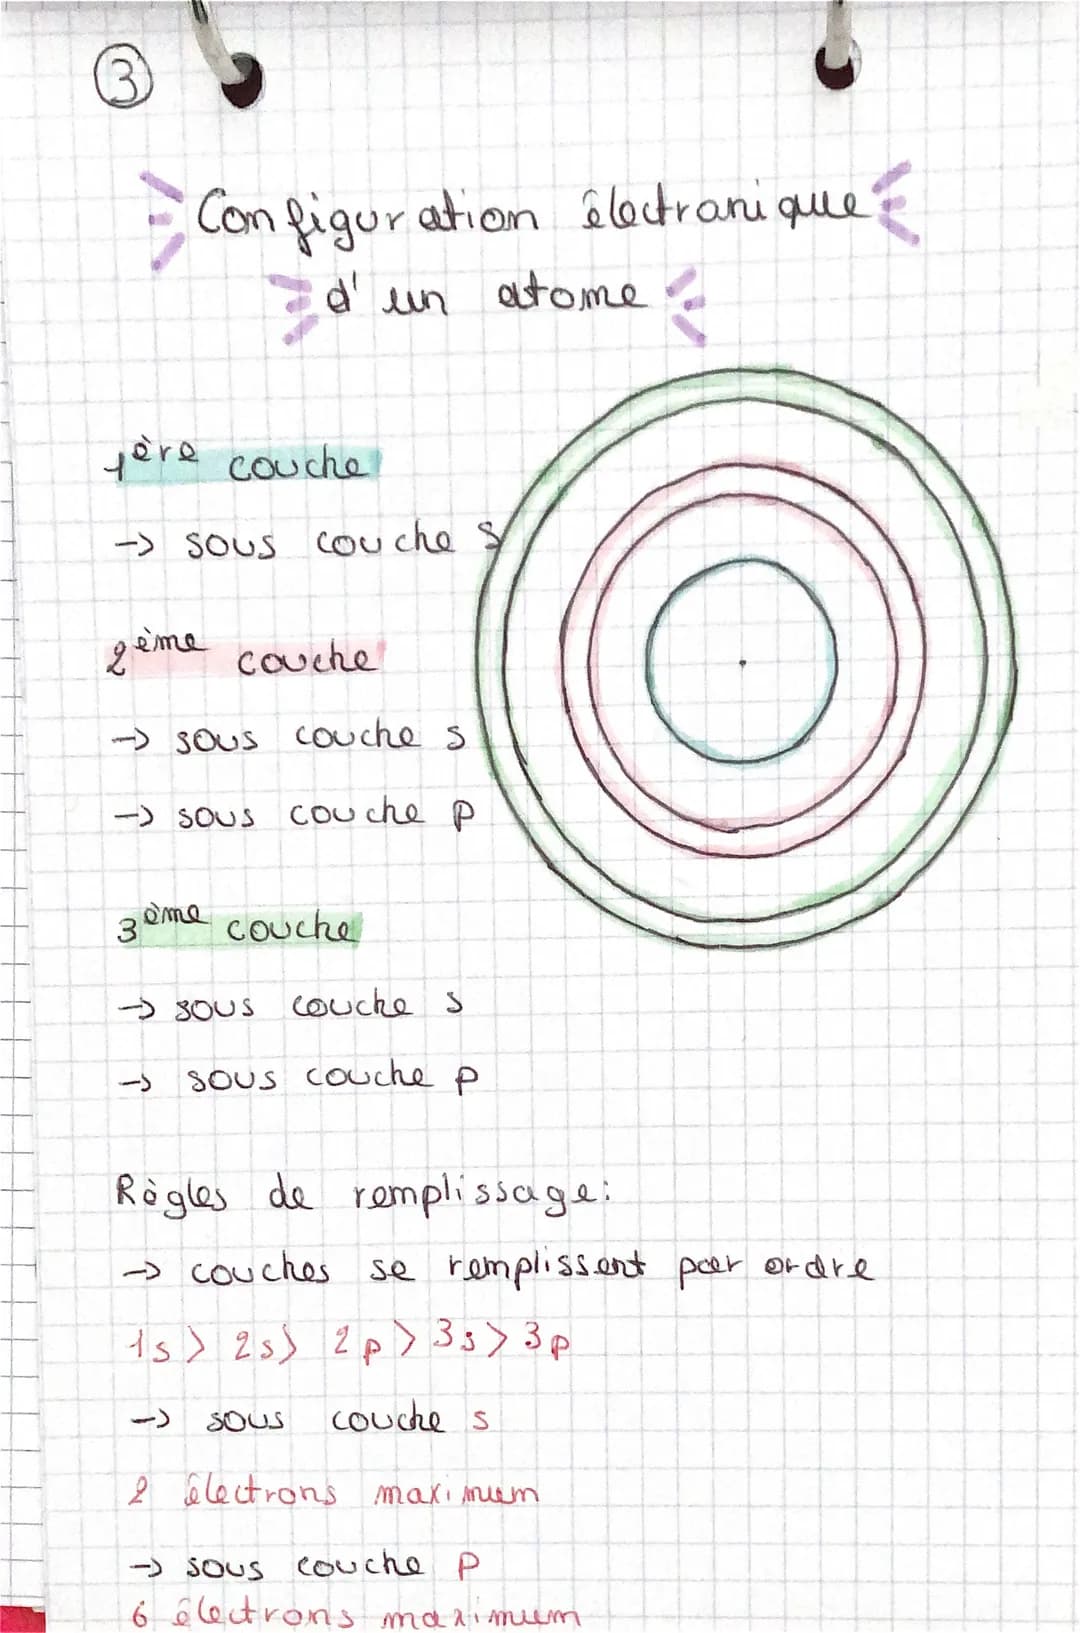 3
Configuration électronique
d'un atome
1ère couche
→ sous couche s
2ème couche
→ sous couche s
→ sous couche p
3ème couche
→ sous couche s
→ sous couche p
Règles de remplissage:
→ couches se remplissent par ordre
1s > 2s > 2p > 3s > 3p
→ sous couche s
2 électrons maximum
→ sous couche p
6 électrons maximum